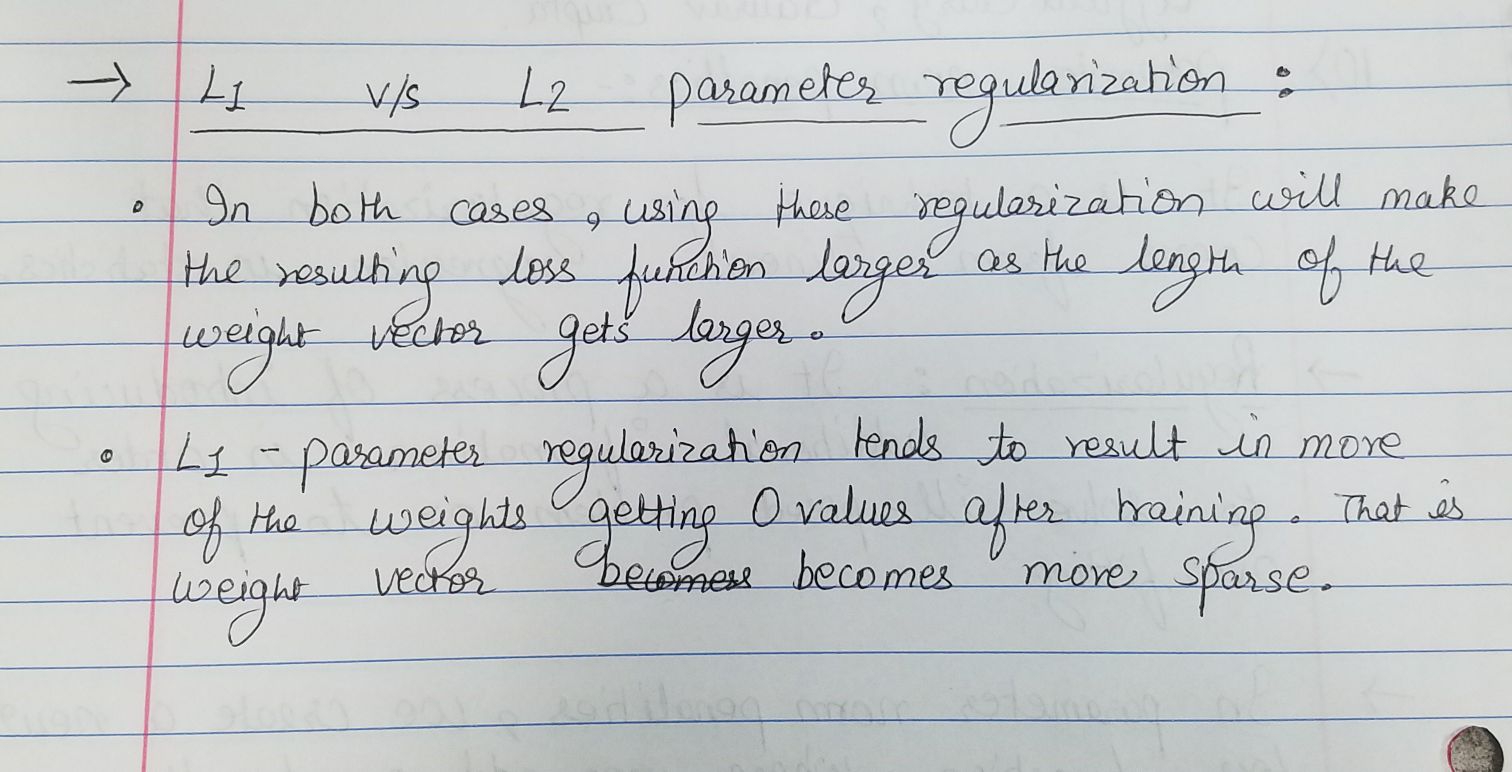 → L1 v/s L2 parameter regularization :
• In both cases, using these regularization will make
the resulting loss function larger as the length of the
weight vector gets larger.
• L1 - parameter regularization tends to result in more
of the weights getting 0 values after training. That is
weight vector becomess becomes more sparse.